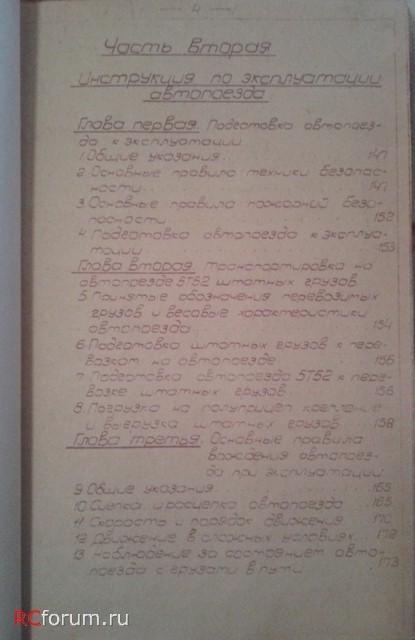 — 4 —
Часть вторая
Инструкция по эксплуатации
автопоезда
Глава первая. Подготовка автопоез-
да к эксплуатации
1. Общие указания. 147
2. Основные правила техники безопас-
ности. 147
3. Основные правила пожарной безо-
пасности. 152
4. Подготовка автопоезда к эксплуа-
тации 153
Глава вторая. Транспортировка на
автопоезде 5Т52 штатных грузов
5. Принятые обозначения перевозимых
грузов и весовые характеристики
автопоезда 154
6. Подготовка штатных грузов к пере-
возкам на автопоезде 156
7. Подготовка автопоезда 5Т52 к пере-
возке штатных грузов 156
8. Погрузка на полуприцеп крепление
и выгрузка штатных грузов 158
Глава третья. Основные правила
вождения автопоез-
да при эксплуатации
9. Общие указания 165
10. Сцепка и расцепка автопоезда 165
11. Скорость и порядок движения 170
12. Движение в сложных условиях. 172
13. Наблюдение за состоянием авто-
поезда с грузами в пути 173
RCforum.ru